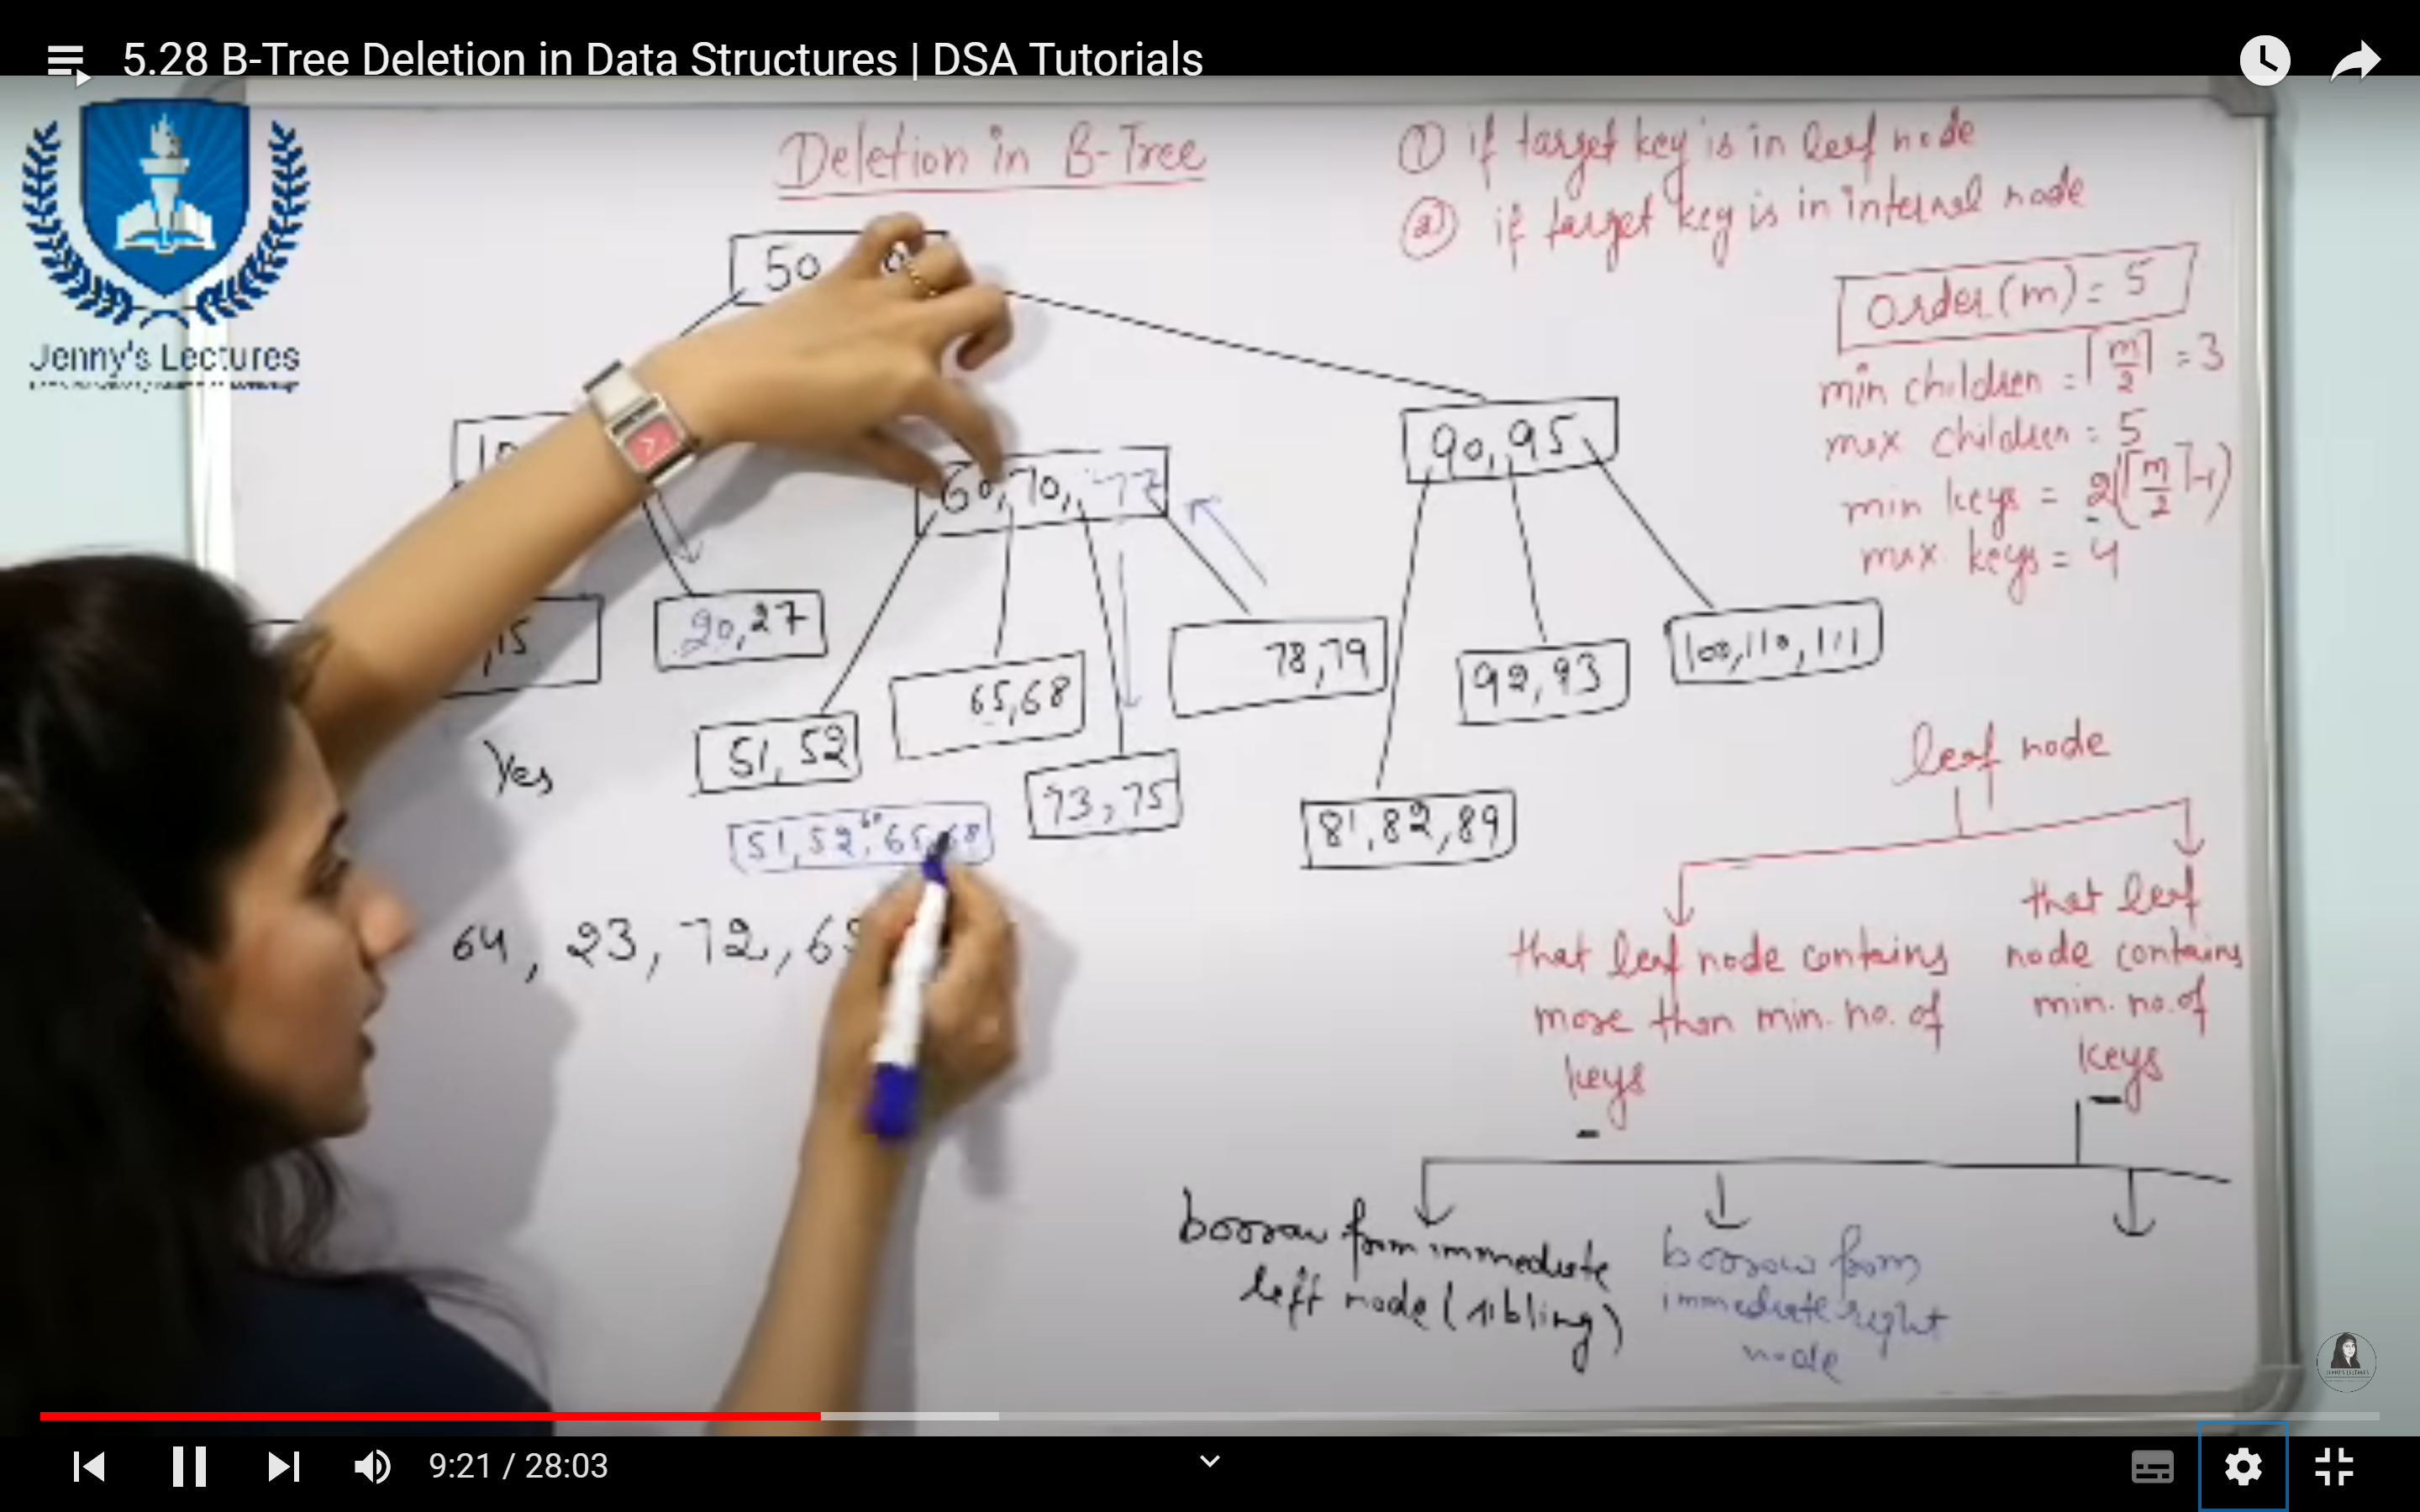 5.28 B-Tree Deletion in Data Structures | DSA Tutorials
Jenny's Lectures
Deletion in B-Tree
① if target key is in leaf node
② if target key is in internal node
Order(m) = 5
min children = ⌈m/2⌉ = 3
max children = 5
min keys = 2 (⌈m/2⌉-1)
max. keys = 4
50
10
60, 70, 77
90, 95
,15
20, 27
51, 52
65, 68
73, 75
78, 79
81, 82, 89
92, 93
100, 110, 111
Yes
51, 52, 60 65, 68
64, 23, 72, 65
leaf node
that leaf node contains
more than min. no. of
keys
that leaf
node contains
min. no. of
keys
borrow from immediate
left node (sibling)
borrow from
immediate right
node
9:21 / 28:03